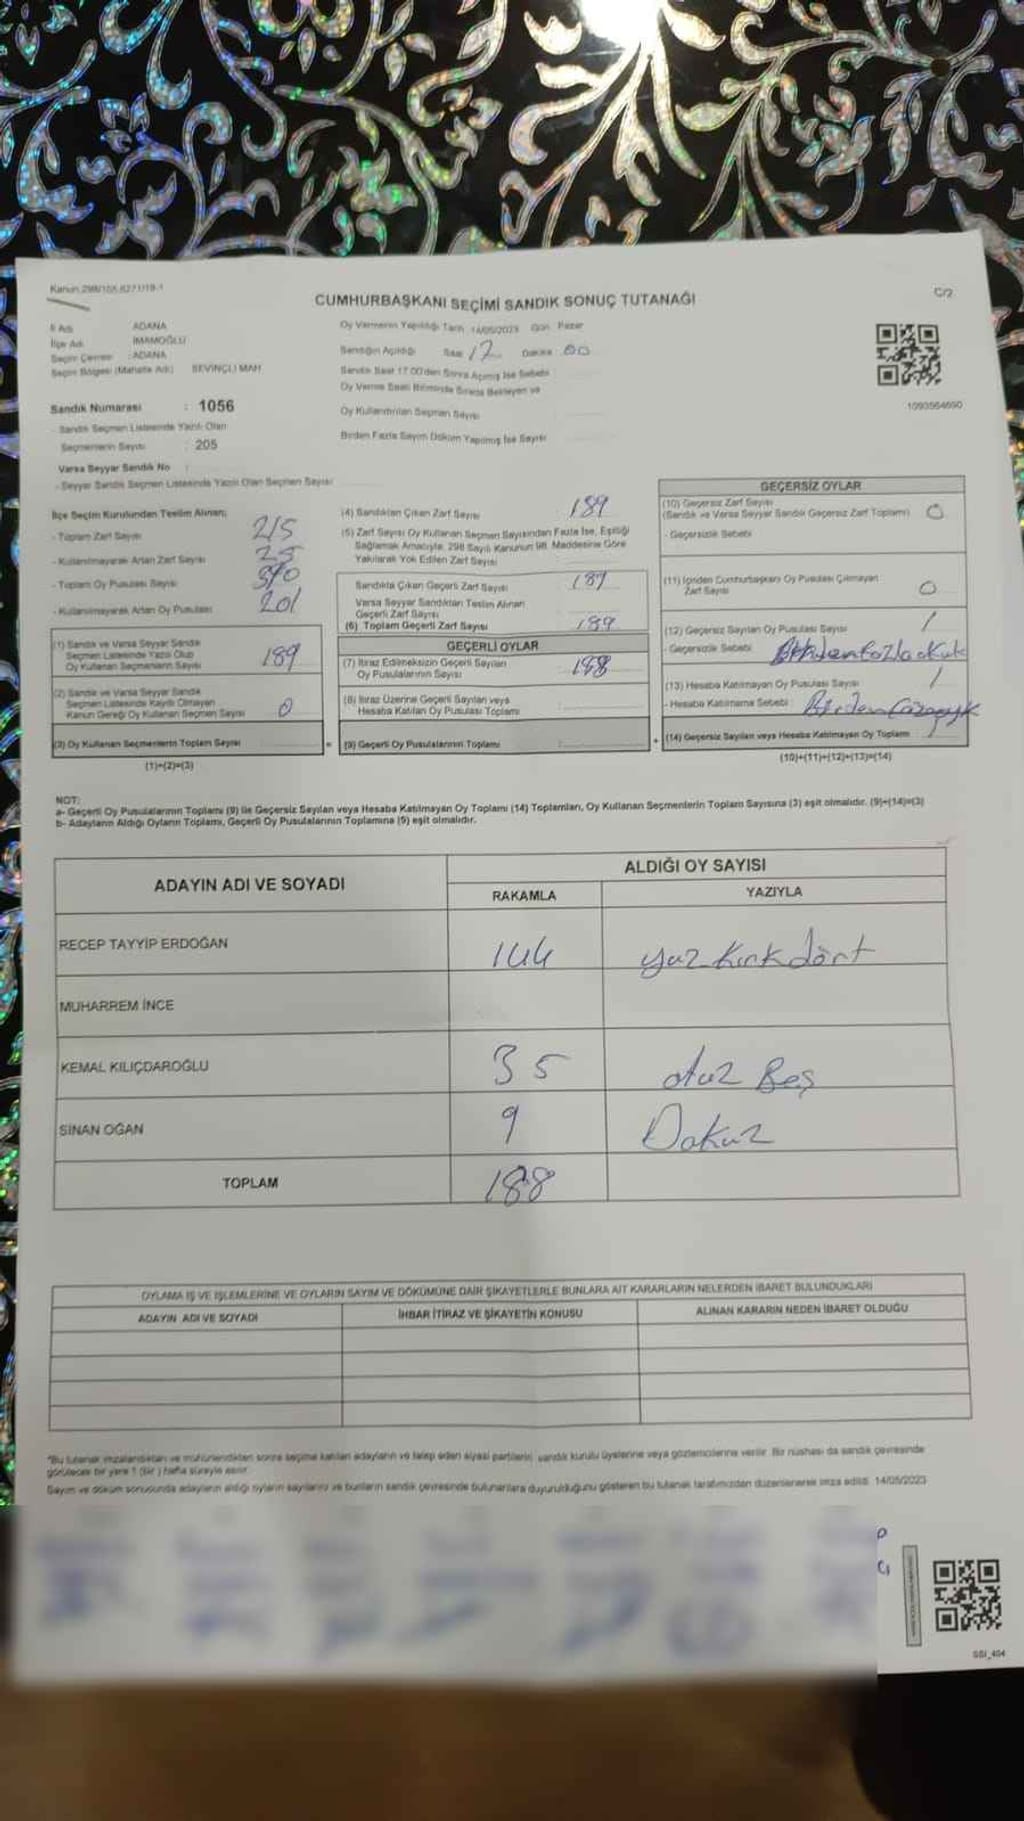 Kanun 298/105-6271/19-1
CUMHURBAŞKANI SEÇİMİ SANDIK SONUÇ TUTANAĞI
C/2
İl Adı : ADANA
İlçe Adı : İMAMOĞLU
Seçim Çevresi : ADANA
Seçim Bölgesi (Mahalle Adı) : SEVİNÇLİ MAH
Sandık Numarası : 1056
- Sandık Seçmen Listesinde Yazılı Olan
Seçmenlerin Sayısı : 205
Varsa Seyyar Sandık No :
- Seyyar Sandık Seçmen Listesinde Yazılı Olan Seçmen Sayısı
Oy Vermenin Yapıldığı Tarih 14/05/2023 Gün Pazar
Sandığın Açıldığı Saat 17 Dakika 00
Sandık Saat 17.00'den Sonra Açılmış İse Sebebi
Oy Verme Saati Bitiminde Sırada Bekleyen ve
Oy Kullandırılan Seçmen Sayısı
Birden Fazla Sayım Döküm Yapılmış İse Sayısı
1093564690
İlçe Seçim Kurulundan Teslim Alınan;
- Toplam Zarf Sayısı 215
- Kullanılmayarak Artan Zarf Sayısı 25
- Toplam Oy Pusulası Sayısı 390
- Kullanılmayarak Artan Oy Pusulası 201
(1) Sandık ve Varsa Seyyar Sandık
Seçmen Listesinde Yazılı Olup
Oy Kullanan Seçmenlerin Sayısı 189
(2) Sandık ve Varsa Seyyar Sandık
Seçmen Listesinde Kayıtlı Olmayan
Kanun Gereği Oy Kullanan Seçmen Sayısı 0
(3) Oy Kullanan Seçmenlerin Toplam Sayısı
(1)+(2)=(3)
(4) Sandıktan Çıkan Zarf Sayısı 189
(5) Zarf Sayısı Oy Kullanan Seçmen Sayısından Fazla İse, Eşitliği
Sağlamak Amacıyla, 298 Sayılı Kanunun 98. Maddesine Göre
Yakılarak Yok Edilen Zarf Sayısı
Sandıkta Çıkan Geçerli Zarf Sayısı 189
Varsa Seyyar Sandıktan Teslim Alınan
Geçerli Zarf Sayısı
(6) Toplam Geçerli Zarf Sayısı 189
GEÇERLİ OYLAR
(7) İtiraz Edilmeksizin Geçerli Sayılan
Oy Pusulalarının Sayısı 188
(8) İtiraz Üzerine Geçerli Sayılan veya
Hesaba Katılan Oy Pusulası Toplamı
= (9) Geçerli Oy Pusulalarının Toplamı
GEÇERSİZ OYLAR
(10) Geçersiz Zarf Sayısı
(Sandık ve Varsa Seyyar Sandık Geçersiz Zarf Toplamı) 0
- Geçersizlik Sebebi
(11) İçinden Cumhurbaşkanı Oy Pusulası Çıkmayan
Zarf Sayısı 0
(12) Geçersiz Sayılan Oy Pusulası Sayısı 1
- Geçersizlik Sebebi :
(13) Hesaba Katılmayan Oy Pusulası Sayısı 1
- Hesaba Katılmama Sebebi :
+ (14) Geçersiz Sayılan veya Hesaba Katılmayan Oy Toplamı 1
(10)+(11)+(12)+(13)=(14)
NOT:
a- Geçerli Oy Pusulalarının Toplamı (9) ile Geçersiz Sayılan veya Hesaba Katılmayan Oy Toplamı (14) Toplamları, Oy Kullanan Seçmenlerin Toplam Sayısına (3) eşit olmalıdır. (9)+(14)=(3)
b- Adayların Aldığı Oyların Toplamı, Geçerli Oy Pusulalarının Toplamına (9) eşit olmalıdır.
ADAYIN ADI VE SOYADI
ALDIĞI OY SAYISI
RAKAMLA YAZIYLA
RECEP TAYYİP ERDOĞAN 144 yüz kırk dört
MUHARREM İNCE
KEMAL KILIÇDAROĞLU 35 otuz Beş
SİNAN OĞAN 9 Dokuz
TOPLAM 188
OYLAMA İŞ VE İŞLEMLERİNE VE OYLARIN SAYIM VE DÖKÜMÜNE DAİR ŞİKAYETLERLE BUNLARA AİT KARARLARIN NELERDEN İBARET BULUNDUKLARI
ADAYIN ADI VE SOYADI İHBAR İTİRAZ VE ŞİKAYETİN KONUSU ALINAN KARARIN NEDEN İBARET OLDUĞU
*Bu tutanak imzalandıktan ve mühürlendikten sonra seçime katılan adayların ve talep eden siyasi partilerin, sandık kurulu üyelerine veya gözlemcilerine verilir. Bir nüshası da sandık çevresinde
görülecek bir yere 1 (bir ) hafta süreyle asılır.
Sayım ve döküm sonucunda adayların aldığı oyların sayılarını ve bunların sandık çevresinde bulunanlara duyurulduğunu gösteren bu tutanak tarafımızdan düzenlenerek imza edildi. 14/05/2023
SSI_404